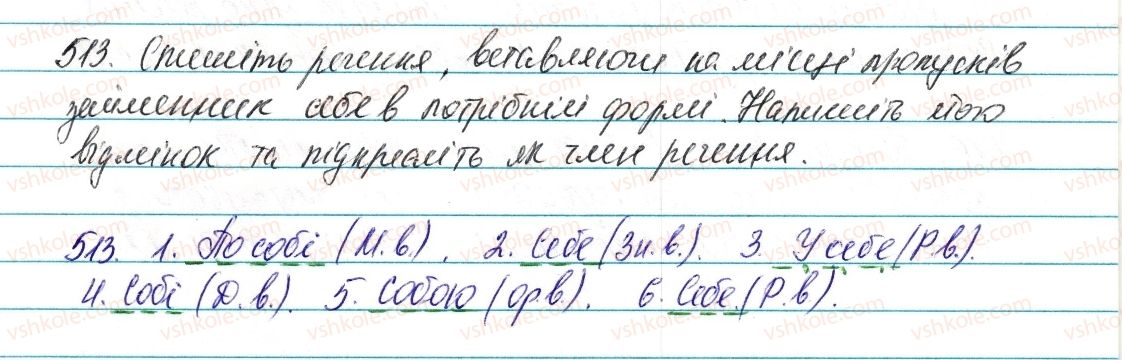 513. Спишіть речення, вставляючи на місці пропусків
займенник себе в потрібній формі. Напишіть його
відмінок та підкресліть як член речення.
513. 1. По собі (М.в.). 2. Себе (Зн.в.). 3. У себе (Р.в.).
4. Собі (Д.в.). 5. Собою (Ор.в.). 6. Себе (Р.в).